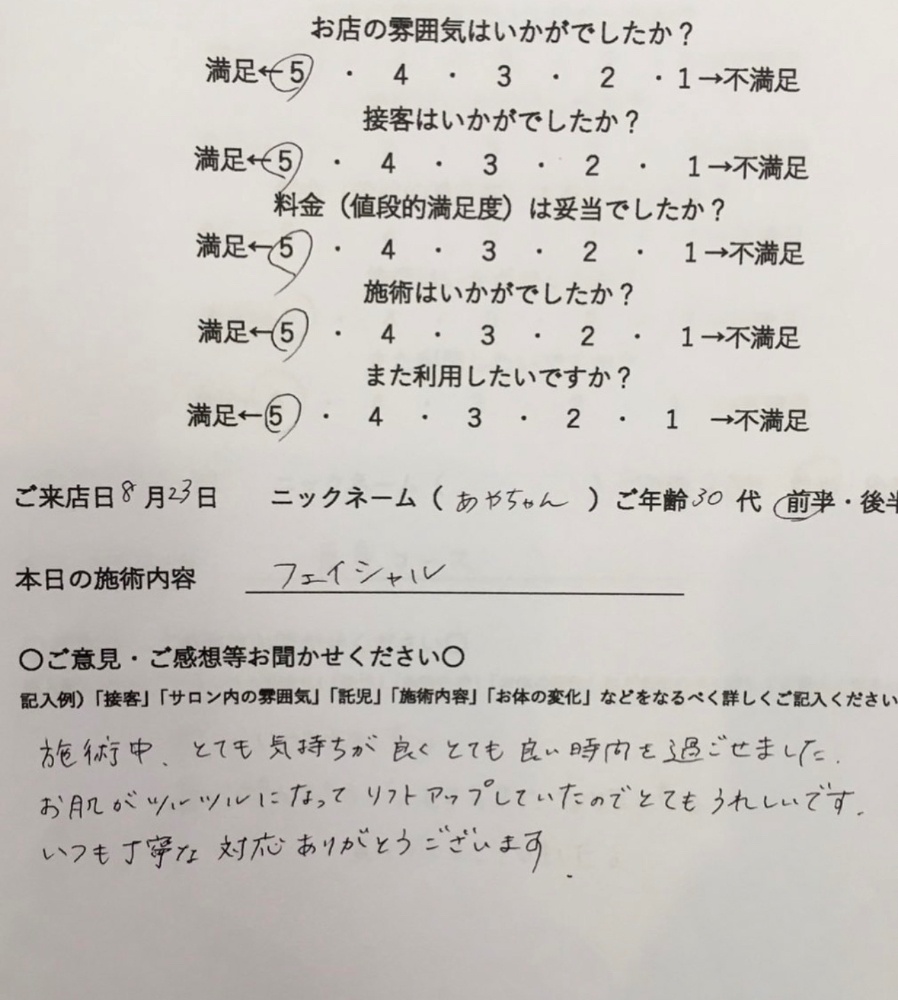 お店の雰囲気はいかがでしたか？
満足←5 ・ 4 ・ 3 ・ 2 ・1→不満足
接客はいかがでしたか？
満足←5 ・ 4 ・ 3 ・ 2 ・ 1→不満足
料金（値段的満足度）は妥当でしたか？
満足←5 ・ 4 ・ 3 ・ 2 ・ 1→不満足
施術はいかがでしたか？
満足←5 ・ 4 ・ 3 ・ 2 ・ 1→不満足
また利用したいですか？
満足←5 ・ 4 ・ 3 ・ 2 ・ 1 →不満足
ご来店日8月23日 ニックネーム（あやちゃん）ご年齢30代 前半・後半
本日の施術内容 フェイシャル
〇ご意見・ご感想等お聞かせください〇
記入例）「接客」「サロン内の雰囲気」「託児」「施術内容」「お体の変化」などをなるべく詳しくご記入ください
施術中、とても気持ちが良くとても良い時間を過ごせました.
お肌がツルツルになってリフトアップしていたのでとてもうれしいです.
いつも丁寧な対応ありがとうございます.